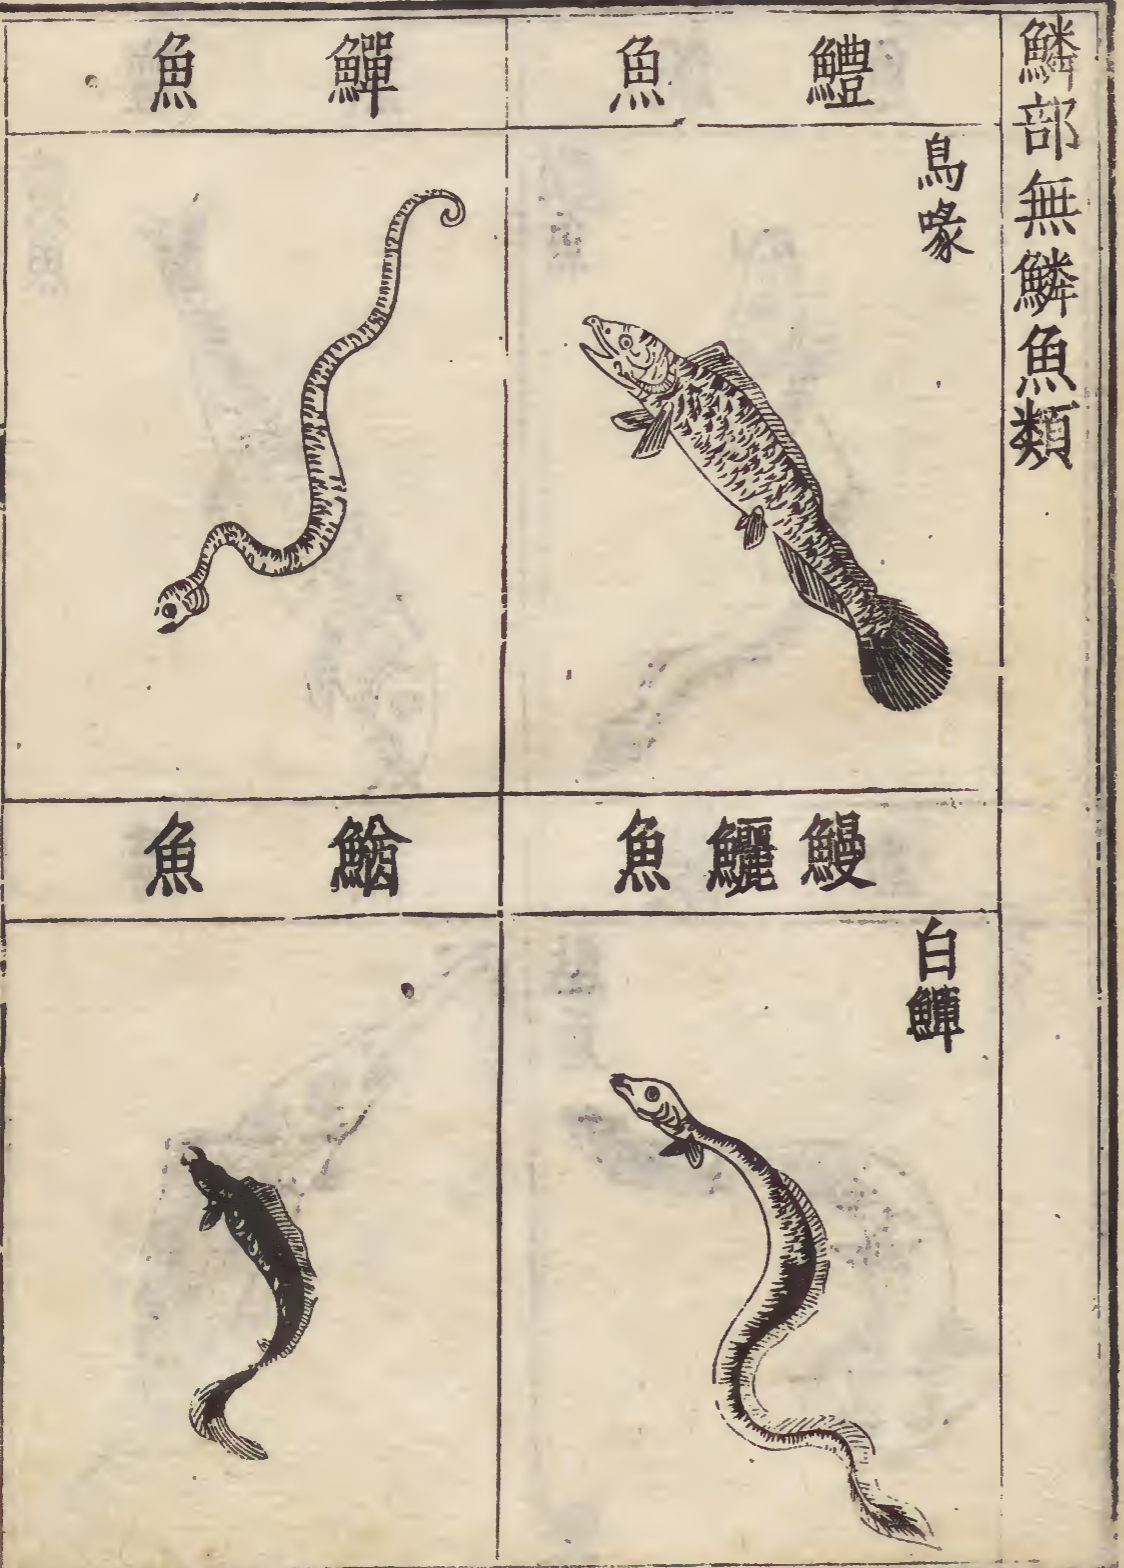 鱗部無鱗魚類
鱧魚
鳥喙
鱓魚
鰻鱺魚
白鱓
鰌魚